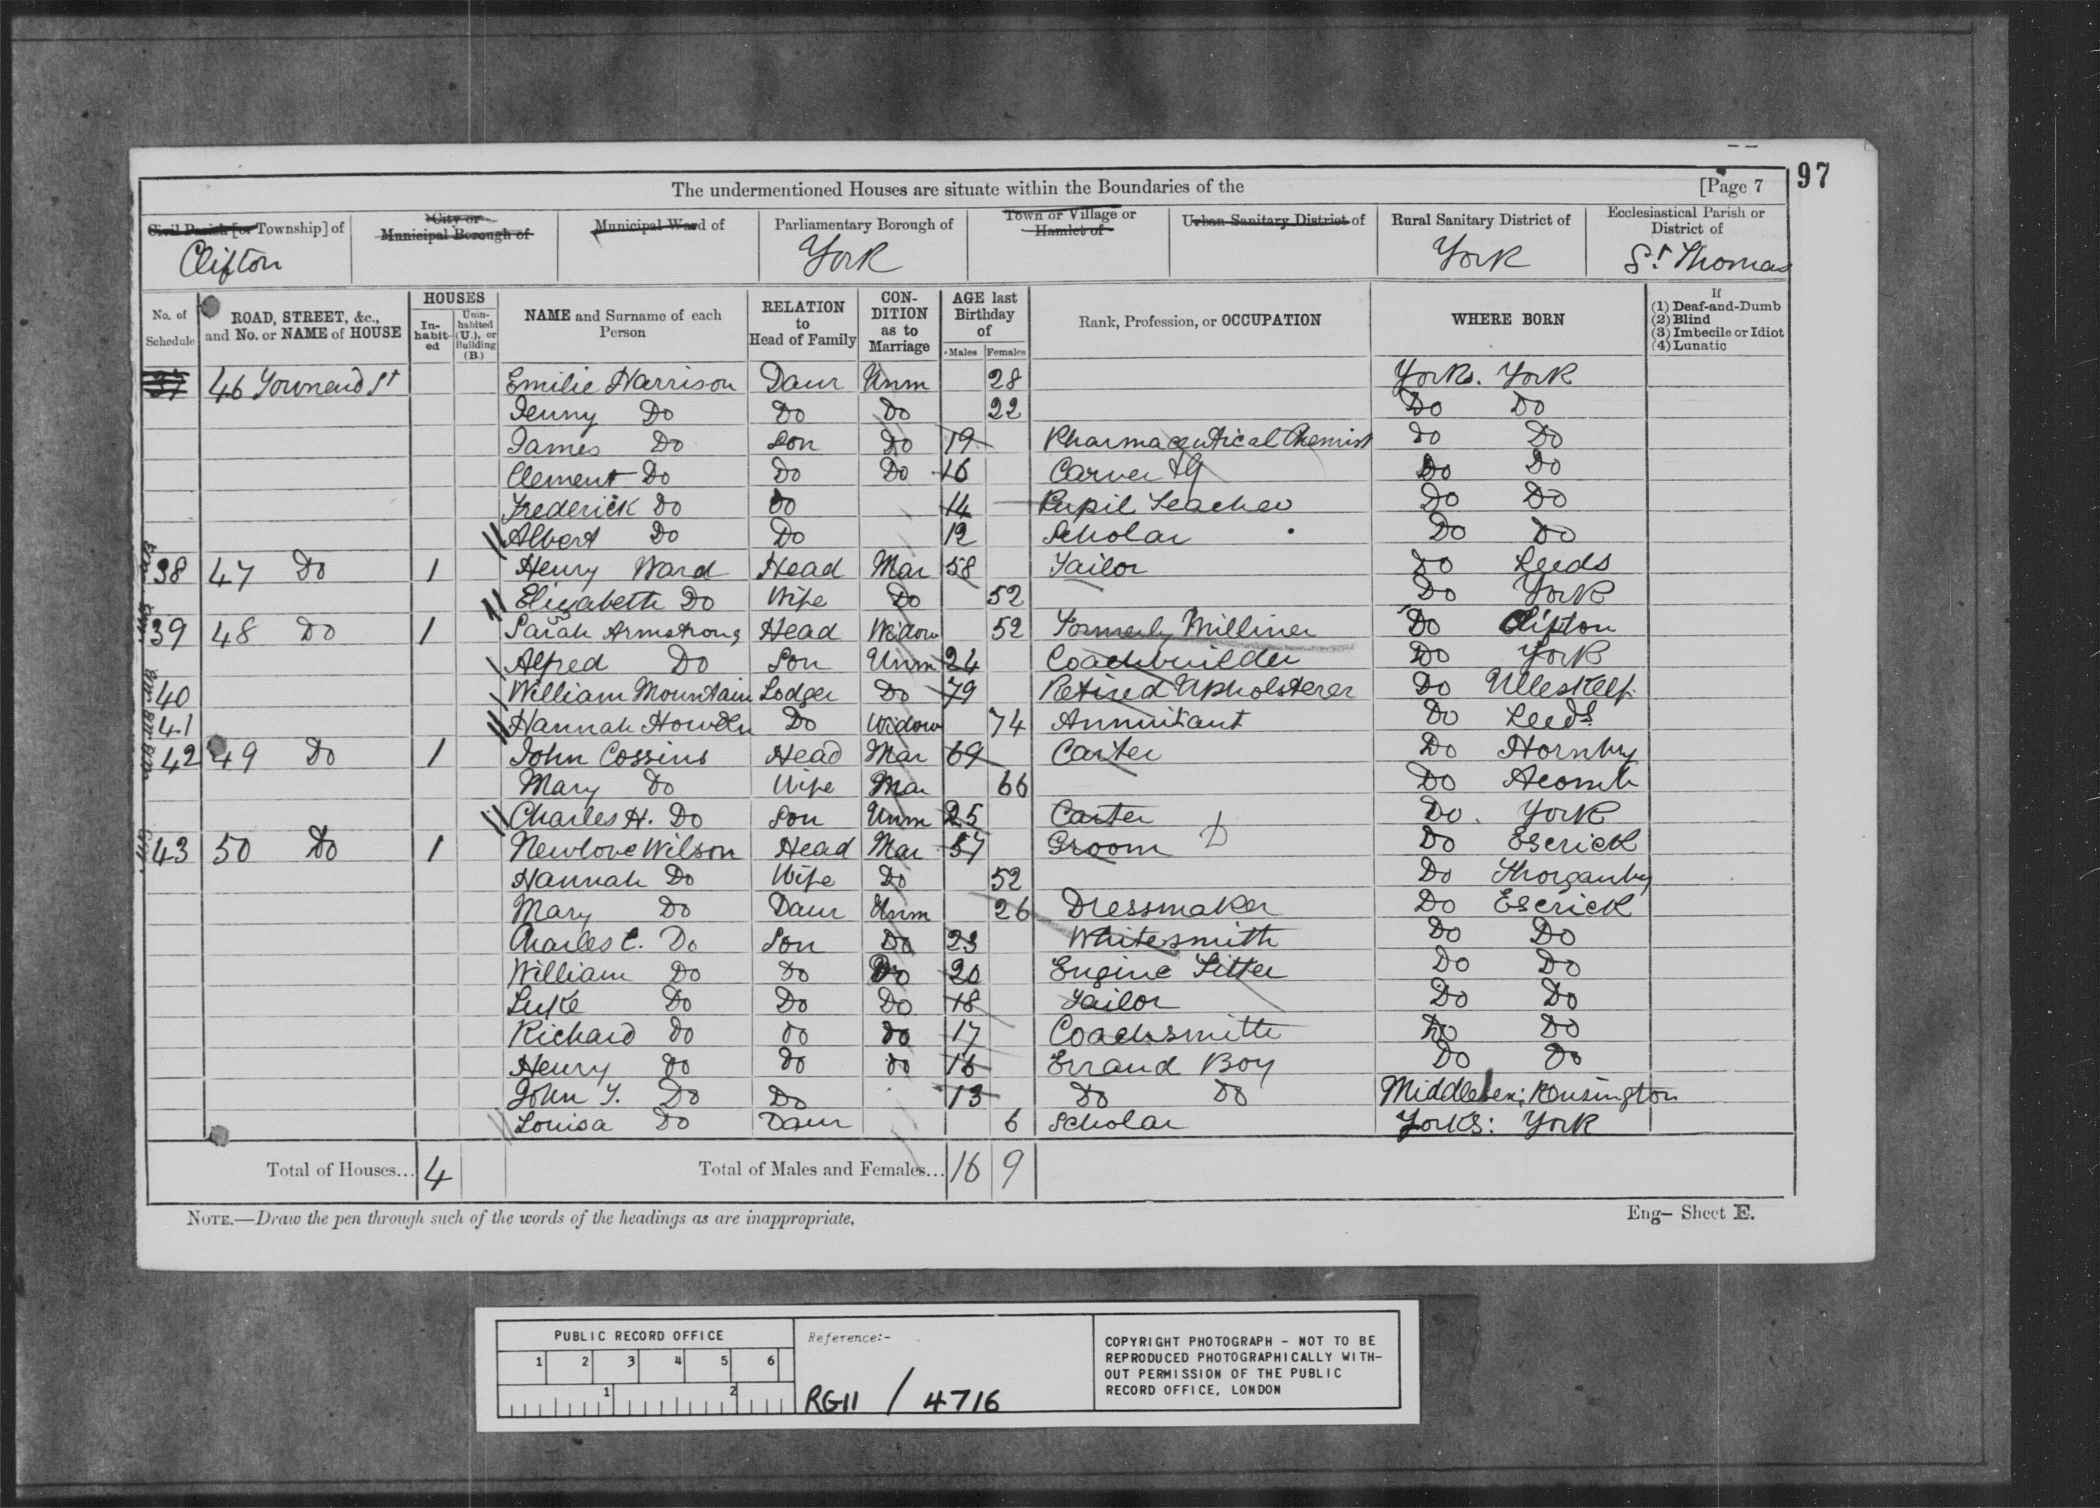 97
The undermentioned Houses are situate within the Boundaries of the [Page 7
Civil Parish [or Township] of City or Municipal Borough of Municipal Ward of Parliamentary Borough of Town or Village or Hamlet of Urban Sanitary District of Rural Sanitary District of Ecclesiastical Parish or District of
Clifton York York St Thomas
No. of Schedule ROAD, STREET, &c., and No. or NAME of HOUSE HOUSES Inhabited Uninhabited (U.), or Building (B.) NAME and Surname of each Person RELATION to Head of Family CONDITION as to Marriage AGE last Birthday of Males Females Rank, Profession, or OCCUPATION WHERE BORN If (1) Deaf-and-Dumb (2) Blind (3) Imbecile or Idiot (4) Lunatic
37 46 Townend St Emilie Harrison Daur Unm 28 Yorks. York
Jenny Do Do Do 22 Do Do
James Do Son Do 19 Pharmaceutical Chemist Do Do
Clement Do Do Do 16 Carver & G Do Do
Frederick Do Do 14 Pupil Teacher Do Do
Albert Do Do 12 Scholar Do Do
38 47 Do 1 Henry Ward Head Mar 58 Tailor Do Leeds
Elizabeth Do Wife Do 52 Do York
39 48 Do 1 Sarah Armstrong Head Widow 52 Formerly Milliner Do Clifton
Alfred Do Son Unm 24 Coachbuilder Do York
40 William Mountain Lodger Do 79 Retired Upholsterer Do Ulleskelf
41 Hannah Howden Do Widow 74 Annuitant Do Leeds
42 49 Do 1 John Cossins Head Mar 69 Carter Do Hornby
Mary Do Wife Mar 66 Do Acomb
Charles H. Do Son Unm 25 Carter Do York
43 50 Do 1 Newlove Wilson Head Mar 57 Groom D Do Escrick
Hannah Do Wife Do 52 Do Thorganby
Mary Do Daur Unm 26 Dressmaker Do Escrick
Charles C. Do Son Do 23 Whitesmith Do Do
William Do Do Do 20 Engine Fitter Do Do
Luke Do Do Do 18 Tailor Do Do
Richard Do Do Do 17 Coachsmith Do Do
Henry Do Do Do 16 Errand Boy Do Do
John T. Do Do 13 Do Do Middlesex; Kensington
Louisa Do Daur 6 Scholar Yorks: York
Total of Houses... 4 Total of Males and Females... 16 9
NOTE.—Draw the pen through such of the words of the headings as are inappropriate. Eng— Sheet E.
PUBLIC RECORD OFFICE
1 2 3 4 5 6
1 2
Reference:-
RG11 / 4716
COPYRIGHT PHOTOGRAPH - NOT TO BE
REPRODUCED PHOTOGRAPHICALLY WITH-
OUT PERMISSION OF THE PUBLIC
RECORD OFFICE, LONDON